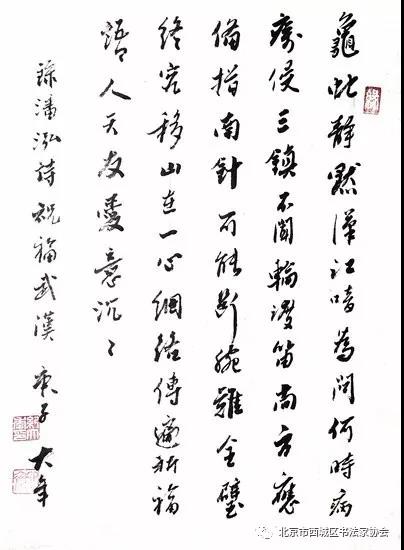 龜蛇静默漢江喑為問何時病
癘侵三鎮不聞輪渡笛尚方應
備指南針而能斷腕難全璧
終究移山在一心網絡傳遍祈福
語人天友愛意沉々
録潘泓詩祝福武漢 庚子 大年
北京市西城区书法家协会